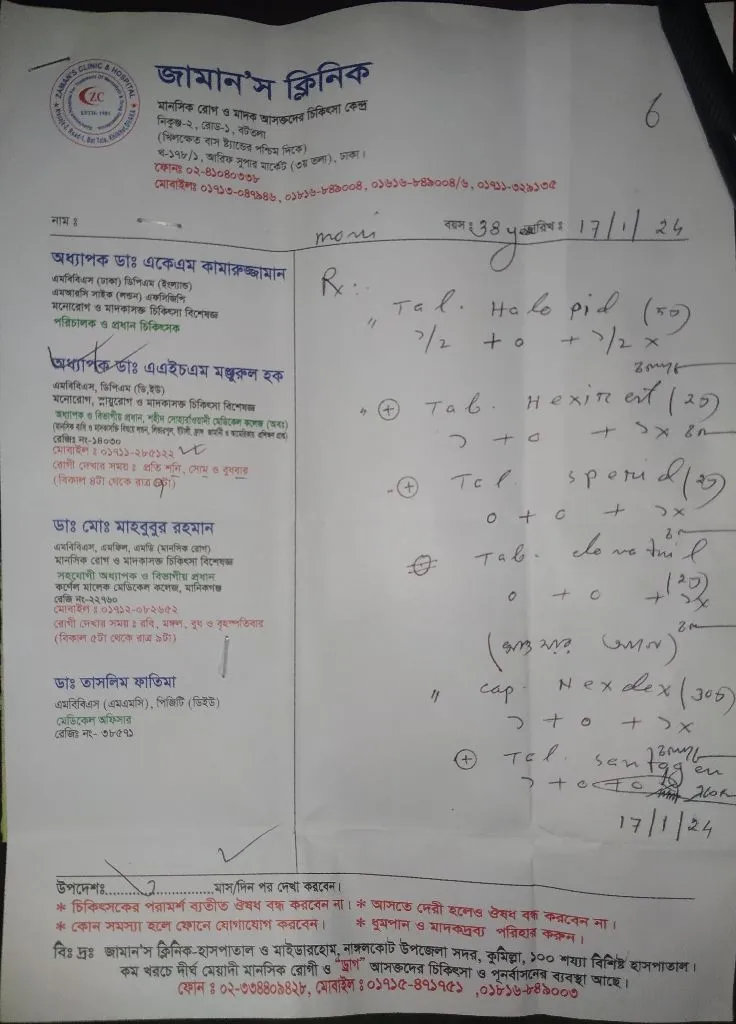 ZAMAN'S CLINIC & HOSPITAL
ZC
ESTD-1981
জামান'স ক্লিনিক
মানসিক রোগ ও মাদক আসক্তদের চিকিৎসা কেন্দ্র
নিকুঞ্জ-২, রোড-১, বটতলা
(খিলক্ষেত বাস ষ্ট্যান্ডের পশ্চিম দিকে)
খ-১৭৮/১, আরিফ সুপার মার্কেট (৩য় তলা), ঢাকা।
ফোনঃ ০২-৪১০৪০৩৩৮
মোবাইলঃ ০১৭১৩-০৪৭৯৪৬, ০১৮১৬-৮৪৯০০৪, ০১৬১৬-৮৪৯০০৪/৬, ০১৭১১-৩২৯১৩৫
6
নাম ঃ moni বয়স ঃ 38 year তারিখ ঃ 17/1/24
অধ্যাপক ডাঃ একেএম কামারুজ্জামান
এমবিবিএস (ঢাকা) ডিপিএম (ইংল্যান্ড)
এমআরসি সাইক (লন্ডন) এফসিজিপি
মনোরোগ ও মাদকাসক্ত চিকিৎসা বিশেষজ্ঞ
পরিচালক ও প্রধান চিকিৎসক
অধ্যাপক ডাঃ এএইচএম মঞ্জুরুল হক
এমবিবিএস, ডিপিএম (ডি,ইউ)
মনোরোগ, স্নায়ুরোগ ও মাদকাসক্ত চিকিৎসা বিশেষজ্ঞ
অধ্যাপক ও বিভাগীয় প্রধান, শহীদ সোহরাওয়ার্দী মেডিকেল কলেজ (অবঃ)
রেজিঃ নং-১৪০৩০
মোবাইল ঃ ০১৭১১-২৮৫১২২
রোগী দেখার সময় ঃ প্রতি শনি, সোম ও বুধবার
(বিকাল ৪টা থেকে রাত ৯টা)
ডাঃ মোঃ মাহবুবুর রহমান
এমবিবিএস, এমফিল, এমডি (মানসিক রোগ)
মানসিক রোগ ও মাদকাসক্ত চিকিৎসা বিশেষজ্ঞ
সহযোগী অধ্যাপক ও বিভাগীয় প্রধান
কর্ণেল মালেক মেডিকেল কলেজ, মানিকগঞ্জ
রেজি নং-২২৭৬০
মোবাইল ঃ ০১৭১২-০৮২৬৫২
রোগী দেখার সময় ঃ রবি, মঙ্গল, বুধ ও বৃহস্পতিবার
(বিকাল ৫টা থেকে রাত ৯টা)
ডাঃ তাসলিম ফাতিমা
এমবিবিএস (এমএমসি), পিজিটি (ডিইউ)
মেডিকেল অফিসার
রেজিঃ নং- ৩৮৫৭১
Rx:-
Tab. Halopid (৫০)
১/২ + ০ + ১/২ x
Tab. Hexinert (২০)
১ + ০ + ১x
Tab. sperid (২০)
০ + ০ + ১x
Tab.
০ + ০ + ১x
cap. Nexdex (30৫)
১ + ০ + ১x
Tab.
১ + ০ + ০
17/1/24
উপদেশঃ.........২.........মাস/দিন পর দেখা করবেন।
* চিকিৎসকের পরামর্শ ব্যতীত ঔষধ বন্ধ করবেন না। * আসতে দেরী হলেও ঔষধ বন্ধ করবেন না।
* কোন সমস্যা হলে ফোনে যোগাযোগ করবেন। * ধুমপান ও মাদকদ্রব্য পরিহার করুন।
বিঃ দ্রঃ জামান'স ক্লিনিক-হাসপাতাল ও মাইন্ডারহোম, নাঙ্গলকোট উপজেলা সদর, কুমিল্লা, ১০০ শয্যা বিশিষ্ট হাসপাতাল।
কম খরচে দীর্ঘ মেয়াদী মানসিক রোগী ও "ড্রাগ" আসক্তদের চিকিৎসা ও পূনর্বাসনের ব্যবস্থা আছে।
ফোন ঃ ০২-৩৩৪৪০৯৪২৮, মোবাইল ঃ ০১৭১৫-৪৭১৭৫১ ,০১৮১৬-৮৪৯০০৩